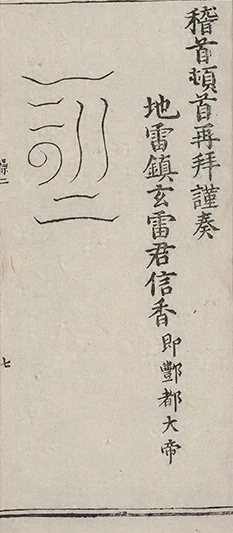 稽首頓首再拜謹奏
地雷鎮玄雷君信香即酆都大帝
七